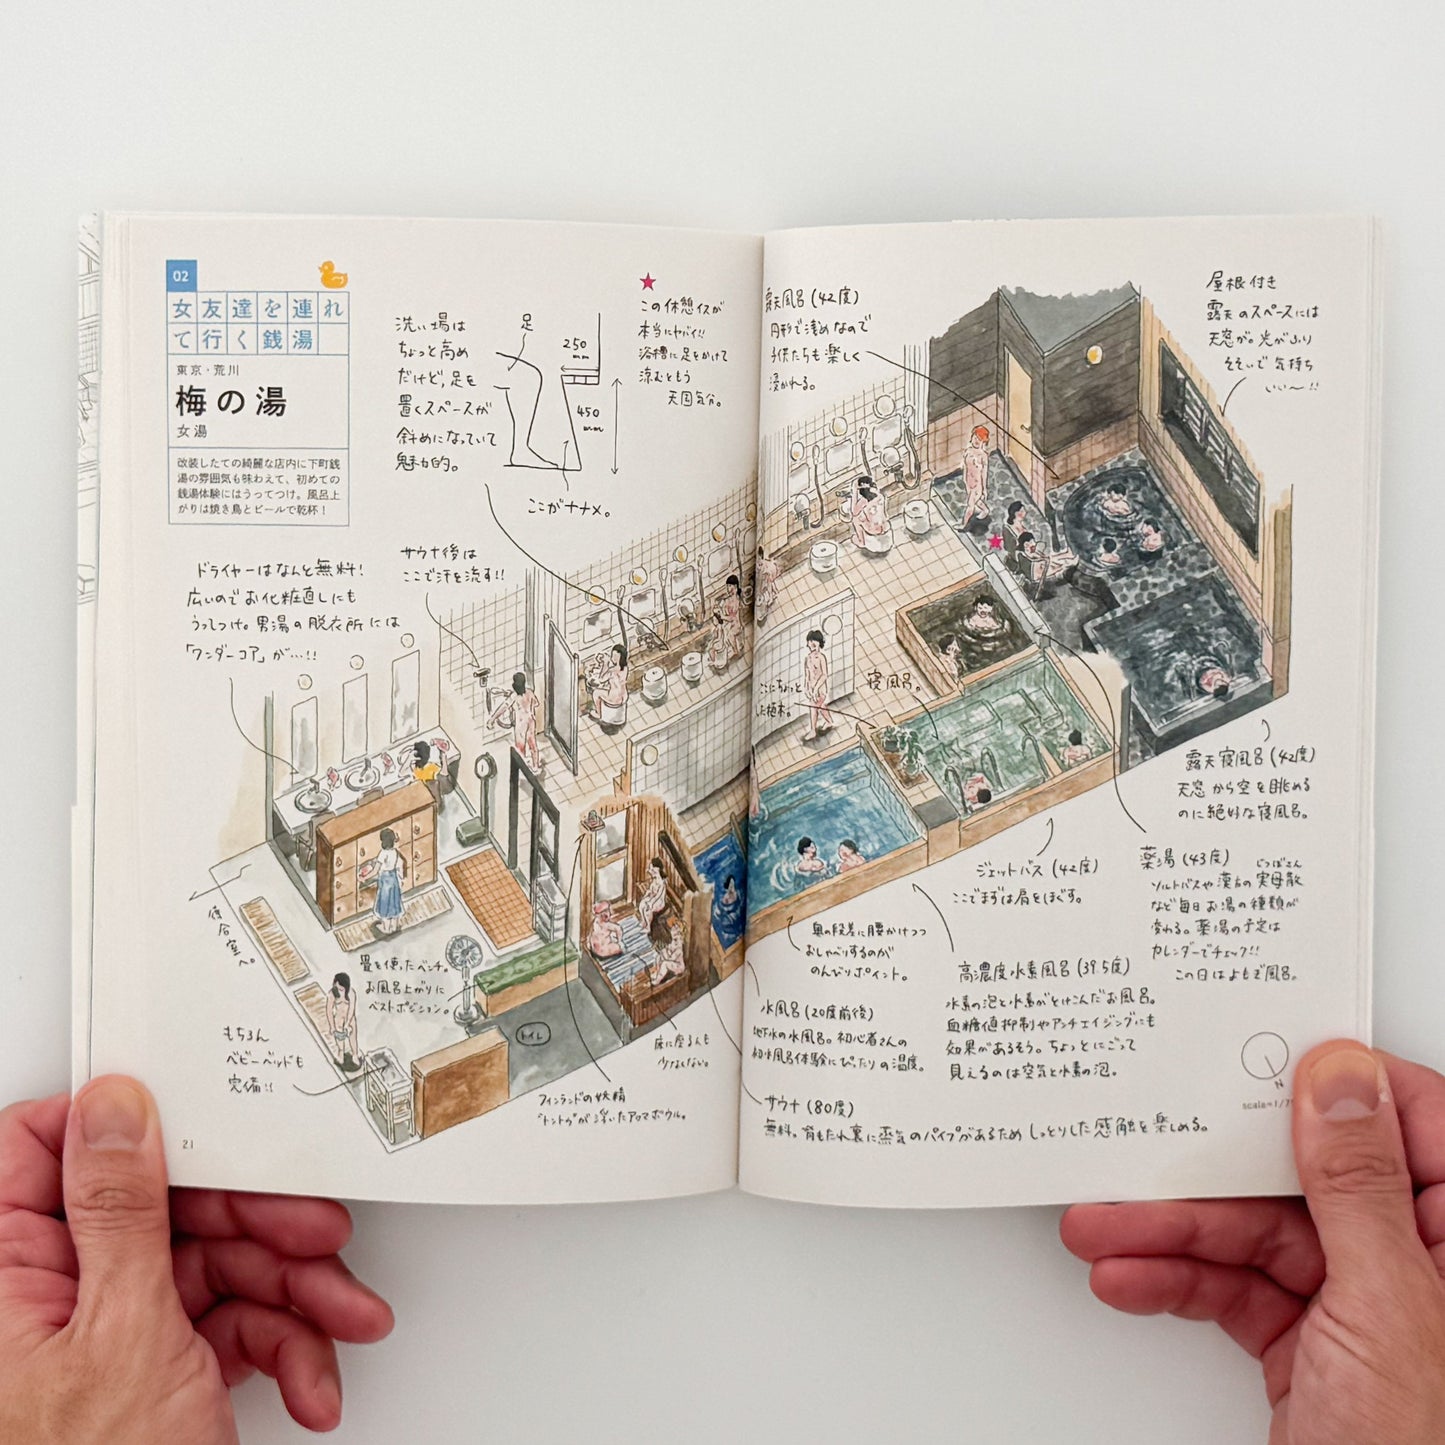 02
女友達を連れ
て行く銭湯
東京・荒川
梅の湯
女湯
改装したての綺麗な店内に下町銭
湯の雰囲気も味わえて、初めての
銭湯体験にはうってつけ。風呂上
がりは焼き鳥とビールで乾杯！
洗い場は
ちょっと高め
だけど、足を
置くスペースが
斜めになっていて
魅力的。
足
250
mm
450
mm
ここがナナメ。
★
この休憩イスが
本当にヤバイ!!
浴槽に足をかけて
涼むともう
天国気分。
ドライヤーはなんと無料!
広いのでお化粧直しにも
うってつけ。男湯の脱衣所には
「ワンダーコア」が…!!
サウナ後は
ここで汗を流す!!
待合室へ。
畳を使ったベンチ。
お風呂上がりに
ベストポジション。
もちろん
ベビーベッドも
完備!!
トイレ
フィンランドの妖精
"トントゥ"が浮いたアロマボウル。
床に座る人も
少なくない。
21
露天風呂(42度)
円形で浅めなので
子供たちも楽しく
浸かれる。
屋根付き
露天のスペースには
天窓が。光がふり
そそいで気持ち
いい〜!!
ここにちょっと
した植木。
寝風呂。
露天寝風呂(42度)
天窓から空を眺める
のに絶好な寝風呂。
ジェットバス(42度)
ここでまずは肩をほぐす。
薬湯(43度)
ソルトバスや漢方の実母散
じつぼさん
など毎日お湯の種類が
変わる。薬湯の予定は
カレンダーでチェック!!
この日はよもぎ風呂。
奥の段差に腰かけつつ
おしゃべりするのが
のんびりポイント。
高濃度水素風呂(39.5度)
水素の泡と水素がとけこんだお風呂。
血糖値抑制やアンチエイジングにも
効果があるそう。ちょっとにごって
見えるのは空気と水素の泡。
水風呂(20度前後)
地下水の水風呂。初心者さんの
初水風呂体験にぴったりの温度。
サウナ(80度)
無料。背もたれ裏に蒸気のパイプがあるためしっとりした感触を楽しめる。
N
scale=1/7